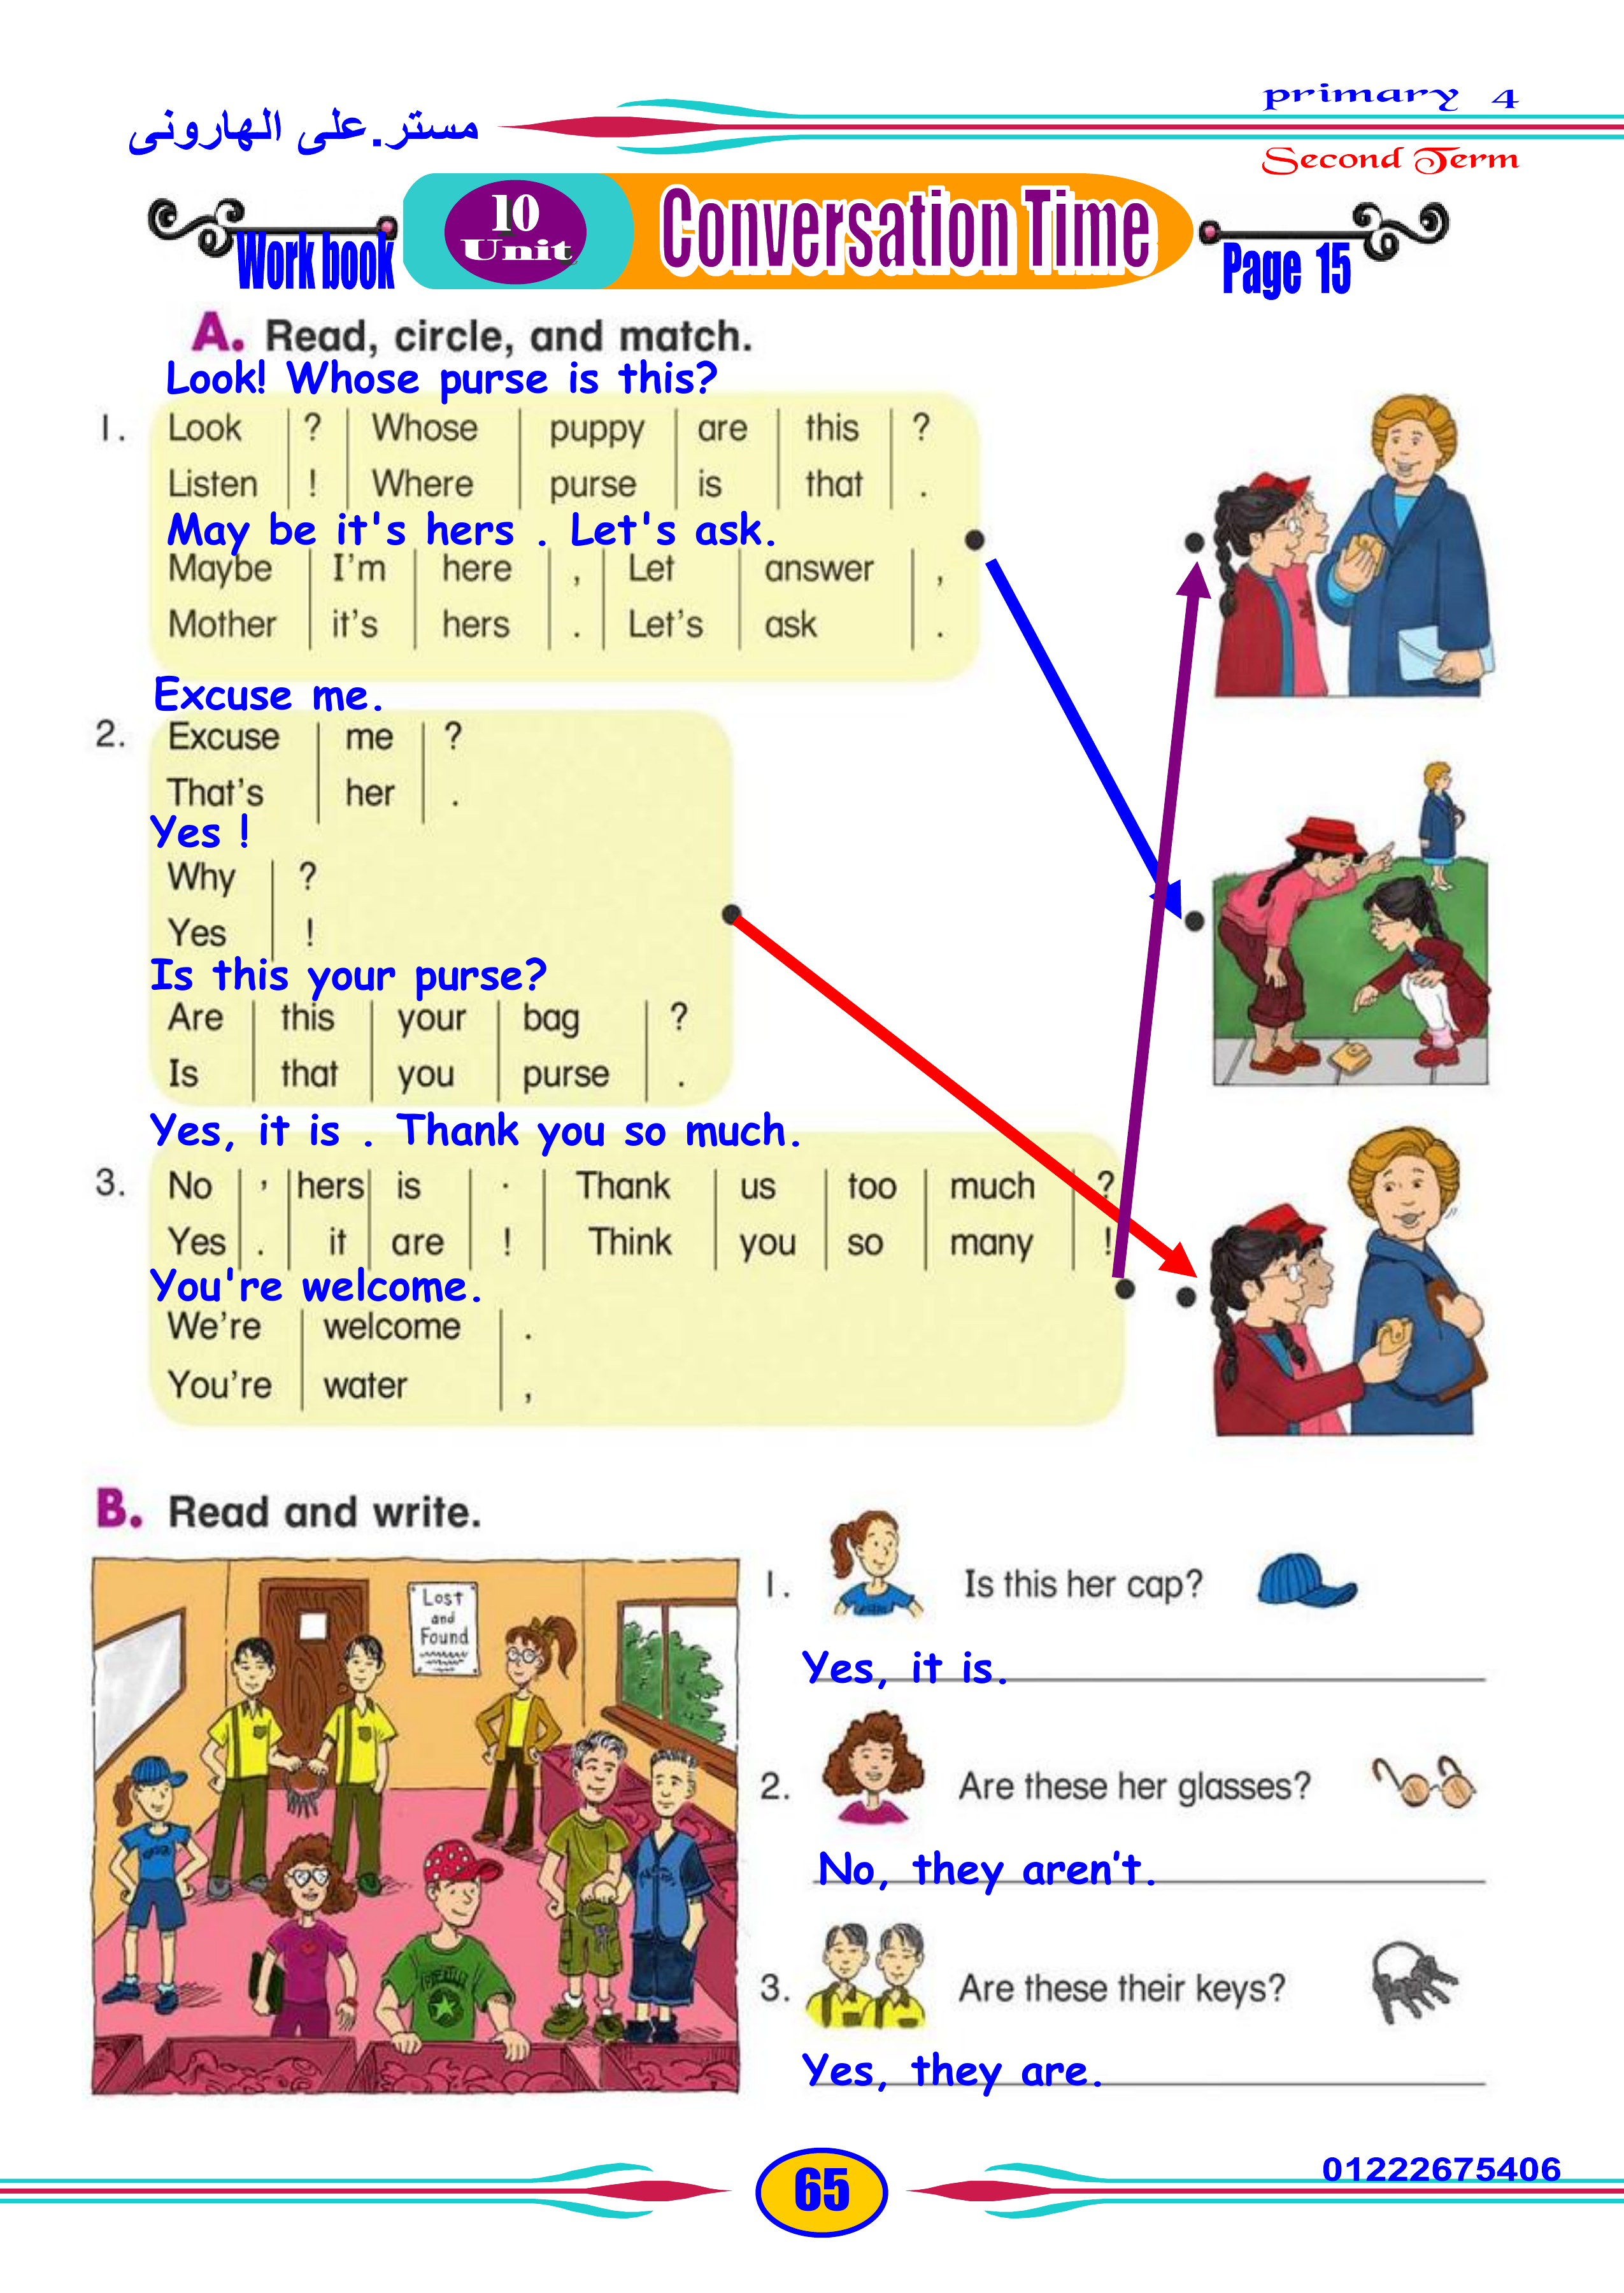 primary 4
مستر.على الهارونى
Second Term
Work book
10
Unit
Conversation Time
Page 15
A. Read, circle, and match.
Look! Whose purse is this?
1. Look | ? | Whose | puppy | are | this | ?
Listen | ! | Where | purse | is | that | .
May be it's hers . Let's ask.
Maybe | I'm | here | , | Let | answer | ,
Mother | it's | hers | . | Let's | ask | .
Excuse me.
2. Excuse | me | ?
That's | her | .
Yes !
Why | ?
Yes | !
Is this your purse?
Are | this | your | bag | ?
Is | that | you | purse | .
Yes, it is . Thank you so much.
3. No | , | hers | is | . | Thank | us | too | much | ?
Yes | . | it | are | ! | Think | you | so | many | !
You're welcome.
We're | welcome | .
You're | water | ,
B. Read and write.
Lost
and
Found
1. Is this her cap?
Yes, it is.
2. Are these her glasses?
No, they aren't.
3. Are these their keys?
Yes, they are.
65
01222675406